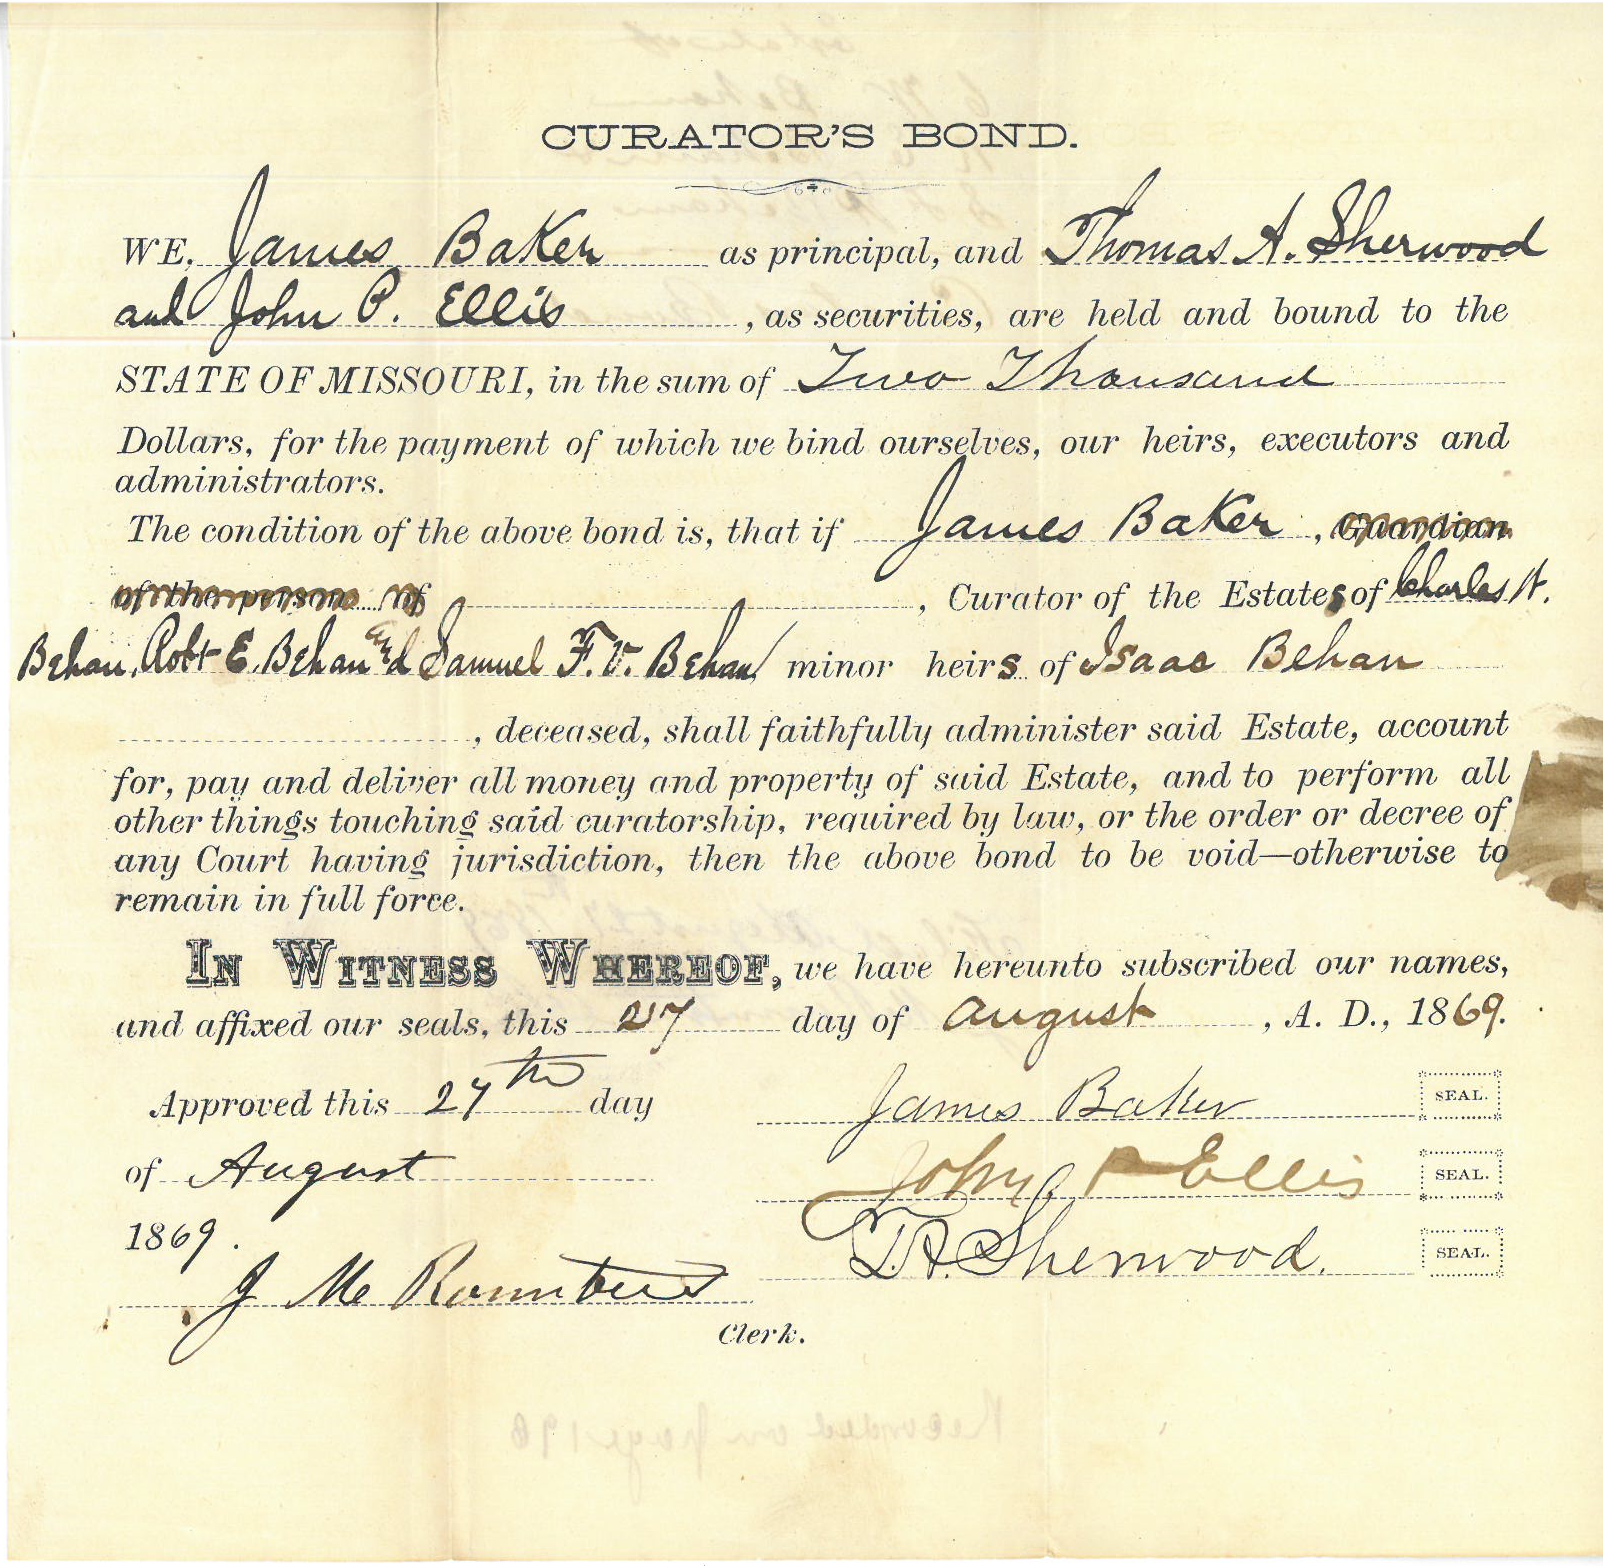 CURATOR'S BOND.
WE, James Baker as principal, and Thomas A. Sherwood
and John P. Ellis, as securities, are held and bound to the
STATE OF MISSOURI, in the sum of Two Thousand
Dollars, for the payment of which we bind ourselves, our heirs, executors and
administrators.
The condition of the above bond is, that if James Baker, Guardian
of the person of , Curator of the Estates of Charles W.
Behan, Robt E. Behan and Samuel F. V. Behan minor heirs of Isaac Behan
, deceased, shall faithfully administer said Estate, account
for, pay and deliver all money and property of said Estate, and to perform all
other things touching said curatorship, required by law, or the order or decree of
any Court having jurisdiction, then the above bond to be void—otherwise to
remain in full force.
IN WITNESS WHEREOF, we have hereunto subscribed our names,
and affixed our seals, this 27 day of August, A. D., 1869.
Approved this 27th day
of August
1869.
J Mc
Clerk.
James Baker SEAL.
John P Ellis SEAL.
T.A. Sherwood. SEAL.
Recorded on page 198